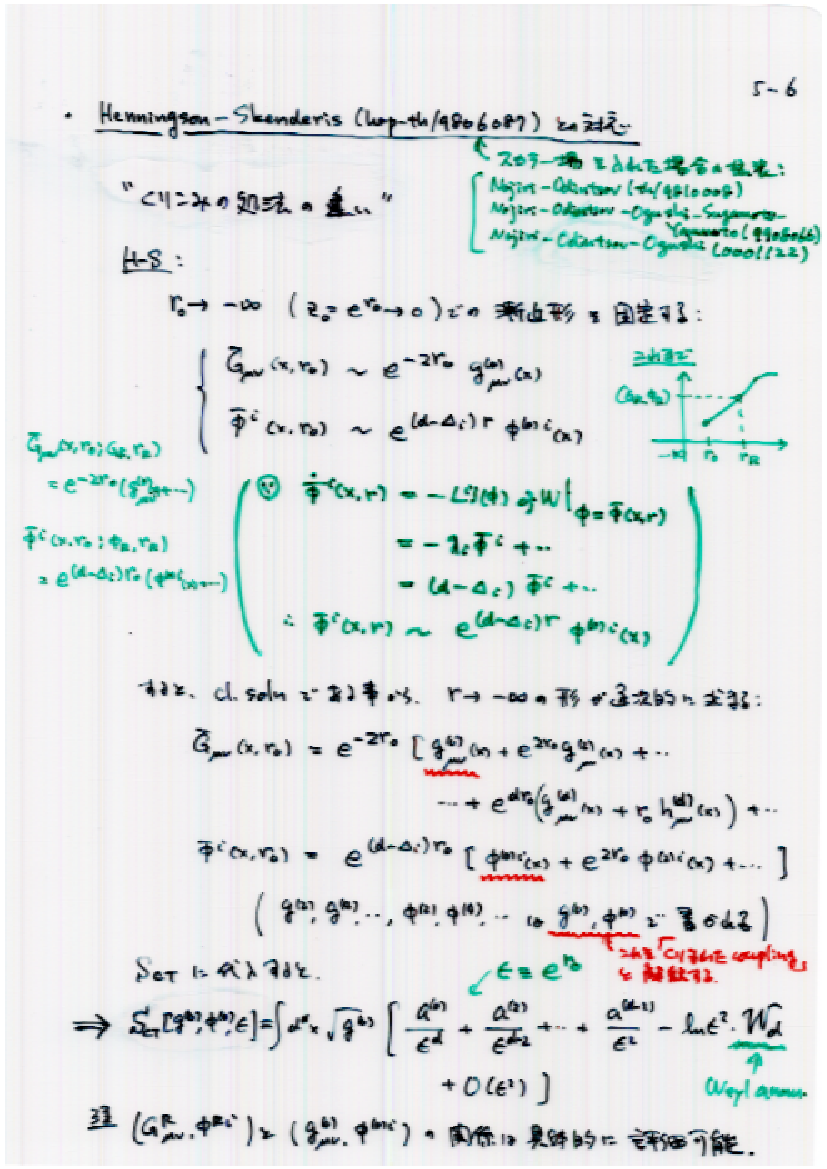 5-6
・ Henningson-Skenderis (hep-th/9806087) との対応
スカラー場を入れた場合の拡張:
Nojiri-Odintsov (th/9810008)
Nojiri-Odintsov-Ogushi-Sugamoto-
Yamamoto (9908066)
Nojiri-Odintsov-Ogushi (0001122)
"くりこみの処法の違い"
H-S :
r₀→ -∞ ( z₀= e^{r₀}→0 ) での 漸近形を固定する:
Ḡ_μν(x,r₀) ~ e^{-2r₀} g^{(0)}_μν(x)
φ̄^i(x,r₀) ~ e^{(d-Δi)r} φ^{(0)i}(x)
これまで
(G_R,φ_R)
-∞ r₀ r_R
Ḡ_μν(x,r₀;G_R,r_R)
= e^{-2r₀}(g^{(0)}_μν+…)
φ̄^i(x,r₀;φ_R,r_R)
= e^{(d-Δi)r₀}(φ^{(0)i}(x)+…)
∵ φ̄̇^i(x,r) = -L^{ij}(φ) ∂_jW|_{φ=φ̄(x,r)}
= -λ_i φ̄^i + …
= (d-Δi) φ̄^i + …
∴ φ̄^i(x,r) ~ e^{(d-Δi)r} φ^{(0)i}(x)
すると、cl. soln である事から、 r→ -∞ の形が逐次的に定まる:
Ḡ_μν(x,r₀) = e^{-2r₀} [ g^{(0)}_μν(x) + e^{2r₀} g^{(2)}_μν(x) + …
… + e^{dr₀}(g^{(d)}_μν(x) + r₀ h^{(d)}_μν(x)) + …
φ̄^i(x,r₀) = e^{(d-Δi)r₀} [ φ^{(0)i}(x) + e^{2r₀} φ^{(2)i}(x) + … ]
( g^{(2)}, g^{(4)}, …, φ^{(2)}, φ^{(4)}, … は g^{(0)}, φ^{(0)} で書ける )
これを「くりこまれた coupling」
と解釈する.
S_CT に代入すると、
ε = e^{r₀}
⇒ S_CT[g^{(0)},φ^{(0)};ε] = ∫d^dx √g^{(0)} [ a^{(0)}/ε^d + a^{(2)}/ε^{d-2} + … + a^{(d-2)}/ε² - lnε²・W_d
+ O(ε²) ]
Weyl anom.
注 (G^R_μν, φ^{Ri}) と (g^{(0)}_μν, φ^{(0)i}) の関係は具体的に評価可能.